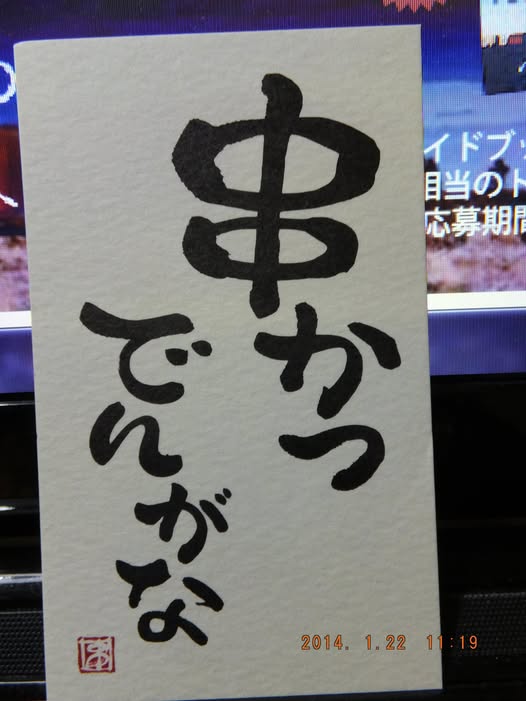 串かつ
でんがな
イドブッ
相当のト
応募期間
2014. 1.22 11:19